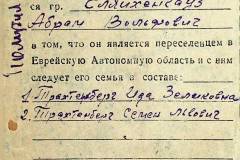 ся гр. Слихенгауз
Абрам Вольфович
в том, что он является переселенцем в
Еврейскую Автономную область и с ним
следует его семья в составе:
1. Трахтенберг Ида Зеликовна
2. Трахтенберг Семен Львович